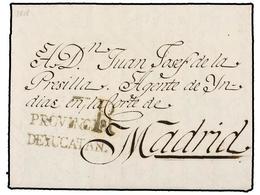 A. Dⁿ Juan Josef de la
Presilla. Agente de Yn-
dias en la Corte de
Madrid
PROVINCIA
DE YUCATAN.